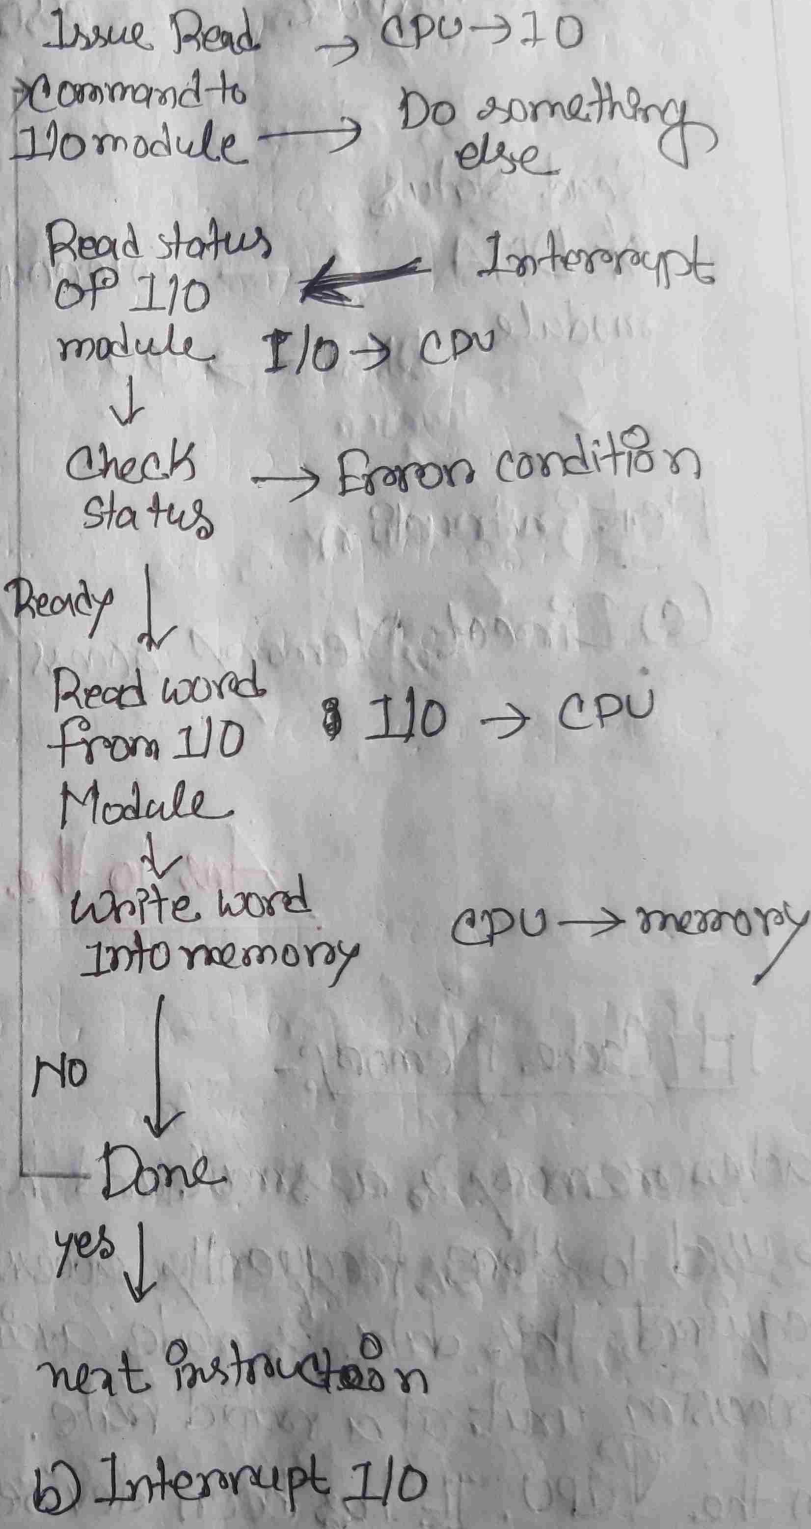 Issue Read → CPU→IO
Command to
I/O module → Do something
else
Read status
OF I/O ← Interrupt
module I/O → CPU
↓
Check → Error condition
status
Ready ↓
Read word
from I/O I/O → CPU
Module
↓
Write word
Into memory CPU → memory
NO ↓
Done
yes ↓
next instruction
b) Interrupt I/O